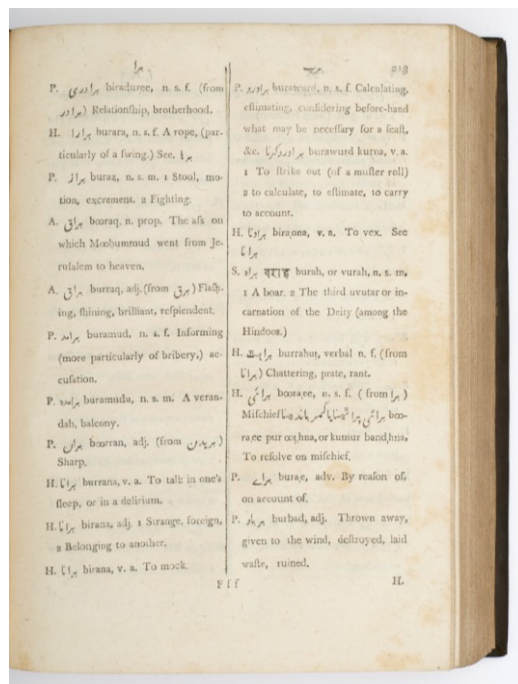 برا
P. برادري biraduree, n. s. f. (from
برادر) Relationſhip, brotherhood.
H. برارا burara, n. s. f. A rope, (par-
ticularly of a ſwing.) See. برا
P. براز buraz, n. s. m. 1 Stool, mo-
tion, excrement. 2 Fighting.
A. براق booraq, n. prop. The aſs on
which Moohummud went from Je-
ruſalem to heaven.
A. براق burraq, adj. (from برق) Flaſh-
ing, ſhining, brilliant, reſplendent.
P. برامد buramud, n. s. f. Informing
(more particularly of bribery,) ac-
cuſation.
P. برامده buramudu, n. s. m. A veran-
dah, balcony.
P. بران boorran, adj. (from بريدن)
Sharp.
H. برانا burrana, v. a. To talk in one's
ſleep, or in a delirium.
H. برانا birana, adj. 1 Strange, foreign,
2 Belonging to another.
H. برانا birana, v. a. To mock.
213
P. براورد burawurd, n. s. f. Calculating,
eſtimating, conſidering before-hand
what may be neceſſary for a feaſt,
&c. براورد كرنا burawurd kurna, v. a.
1 To ſtrike out (of a muſter roll)
2 to calculate, to eſtimate, to carry
to account.
H. براونا biraona, v. a. To vex. See
برانا
S. براه वराह burah, or vurah, n. s. m.
1 A boar. 2 The third uvutar or in-
carnation of the Deity (among the
Hindoos.)
H. burrahut, verbal n. f. (from
برانا) Chattering, prate, rant.
H. برائي booraee, n. s. f. (from برا)
Miſchief برائي پر boo-
raee pur or kumur bandhna,
To reſolve on miſchief.
P. براے burae, adv. By reaſon of,
on account of.
P. برباد burbad, adj. Thrown away,
given to the wind, deſtroyed, laid
waſte, ruined.
F f f
H.